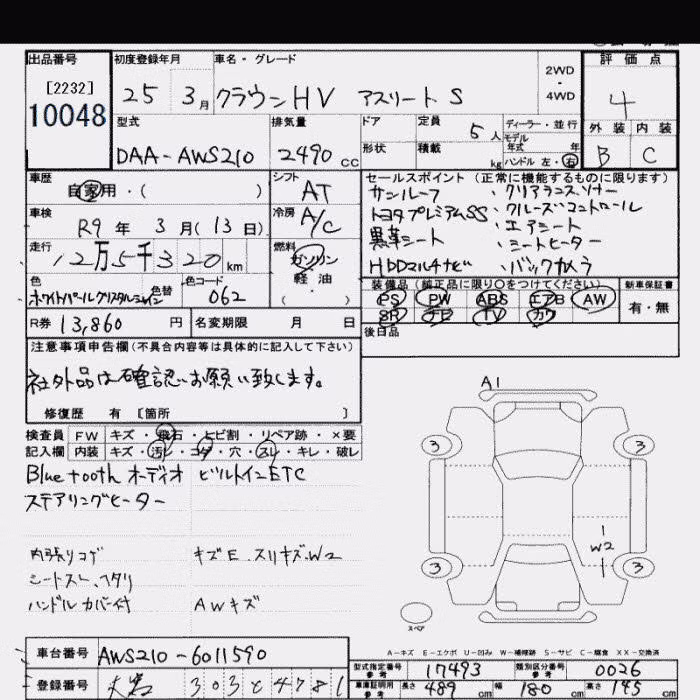 出品番号 初度登録年月 車名・グレード 評価点
[2232]
10048
25 3月 クラウンHV アスリートS 2WD・4WD 4
型式 排気量 ドア 定員 5人 ディーラー・並行 外装 内装
モデル年式 年
DAA-AWS210 2490cc 形状 積載 kg ハンドル 左・右 B C
車歴 シフト セールスポイント (正常に機能するものに限ります)
自家用・( ) AT サンルーフ ・クリアランスソナー
車検 冷房 トヨタプレミアムSS ・クルーズコントロール
R9年 3月(13日) A/C 黒革シート ・エアシート
・シートヒーター
走行 燃料 HDDマルチナビ ・バックカメラ
12万5千320km ガソリン
軽油
・( )
色 色替 色コード 装備品 (純正品に限り○をつけてください) 新車保証書
ホワイトパールクリスタルシャイン 062 PS PW ABS エアB AW 有・無
SR ナビ TV カワ
R券 13,860円 名変期限 月 日 後日品
注意事項申告欄(不具合内容等は具体的に記入して下さい)
社外品は確認お願い致します。
修復歴 有 [箇所 ]
検査員 FW キズ・飛石・ヒビ割・リペア跡・×要
記入欄 内装 キズ・汚レ・コゲ・穴・スレ・キレ・破レ
Bluetoothオーディオ ビルトインETC
ステアリングヒーター
内張りコゲ キズE.スリキズ.W2
シートスレ.ヘタリ
ハンドルカバー付 AWキズ
A1
3 3
W2
3 3
スペア
A-キズ E-エクボ U-凹み W-補修跡 S-サビ C-腐食 XX-交換済
車台番号 AWS210-6011590
型式指定番号 参考 17493 類別区分番号 参考 0026
登録番号 303 4781
車庫証明用 参考 長さ 489cm 幅 180cm 高さ 145cm